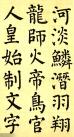 河淡鱗潛羽翔
龍師火帝鳥官
人皇始制文字